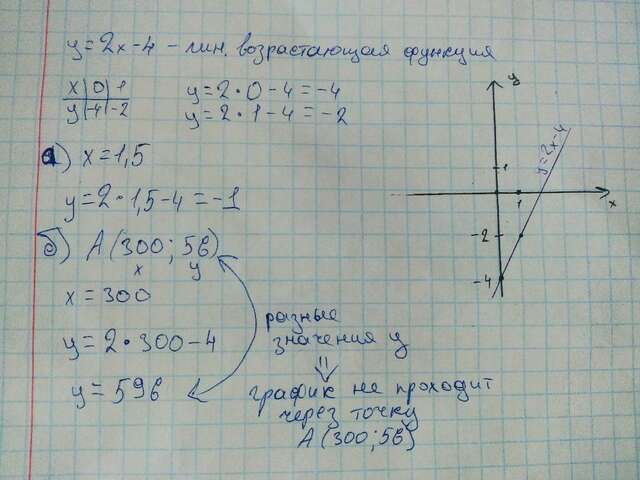 y=2x-4 - лин. возрастающая функция
x | 0 | 1
y | -4 | -2
y=2•0-4=-4
y=2•1-4=-2
а) x=1,5
y=2•1,5-4=-1
б) A(300; 56)
x y
x=300
y=2•300-4
y=596
разные
значения y
⇓
график не проходит
через точку
A(300;56)
y
y=2x-4
1
1
x
-2
-4